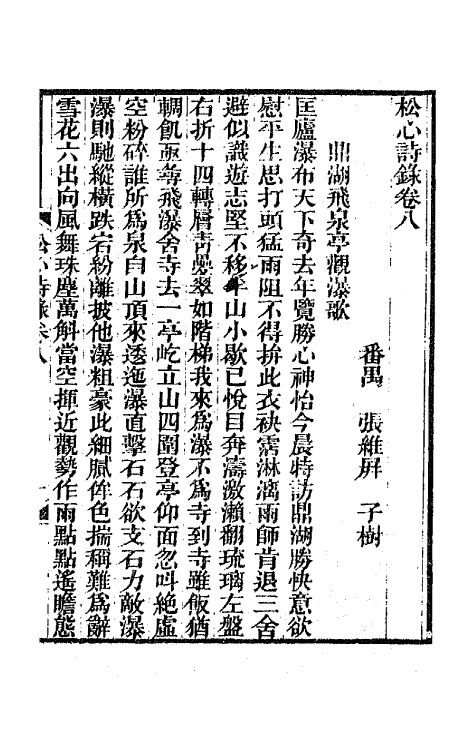 松心詩錄卷八
番禺　張維屏　子樹
鼎湖飛泉亭觀瀑歌
匡廬瀑布天下奇去年覽勝心神怡今晨特訪鼎湖勝快意欲
慰平生思打頭猛雨阻不得拚此衣袂霑淋漓雨師肯退三舍
避似識遊志堅不移半山小歇已悅目奔濤激瀨翻琉璃左盤
右折十四轉層青疊翠如階梯我來為瀑不為寺到寺雖飯猶
輖飢亟尋飛瀑舍寺去一亭屹立山四圍登亭仰面忽叫絕虛
空粉碎誰所為泉自山頂來逶迤瀑直擊石石欲支石力敵瀑
瀑則馳縱橫跌宕紛離披他瀑粗豪此細膩侔色揣稱難為辭
雪花六出向風舞珠塵萬斛當空揮近觀勢作雨點點遙瞻態
松心詩錄卷八
一